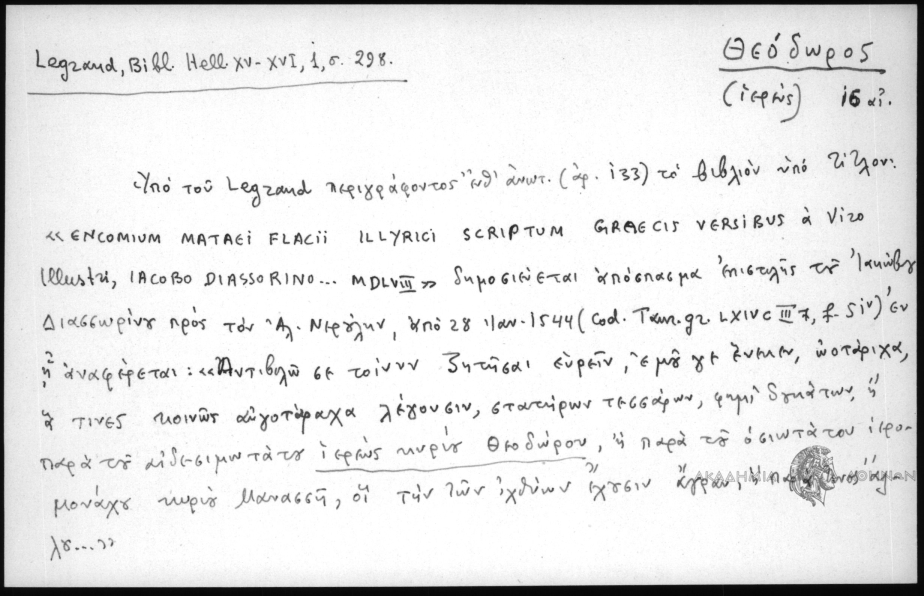 Legrand, Bibl. Hell. XV-XVI, 1, σ. 298.
Θεόδωρος
(ἱερεὺς) 16 αἰ.
Ὑπὸ τοῦ Legrand περιγράφοντος ἔνθ' ἀνωτ. (ἀρ. 133) τὸ βιβλίον ὑπὸ τίτλον:
«ENCOMIUM MATAEI FLACII ILLYRICI SCRIPTUM GRAECIS VERSIBUS à Viro
Illustri, IACOBO DIASSORINO... MDLVIII» δημοσιεύεται ἀπόσπασμα ἐπιστολῆς τοῦ Ἰακώβου
Διασσωρίνου πρὸς τὸν Ἀλ. Νερούλην, ἀπὸ 28 Ἰαν. 1544 (Cod. Taur. gr. LXIV c III 7, f. 51v) ἐν
ᾗ ἀναφέρεται: «Ἀντιβολῶ σε τοίνυν ζητῆσαι εὑρεῖν, ἐμοῦ γε ἕνεκεν, ὠοτάριχα,
ἅ τινες κοινῶς αὐγοτάραχα λέγουσιν, στατήρων τεσσάρων, φημὶ δουκάτων, ἢ
παρὰ τοῦ αἰδεσιμωτάτου ἱερέως κυρίου Θεοδώρου, ἢ παρὰ τοῦ ὁσιωτάτου ἱερο-
μονάχου κυρίου Μανασσῆ, οἳ τὴν τῶν ἰχθύων ἔχουσιν ἄγραν, ἢ παρά τινος ἄλ-
λου...»
ΑΚΑΔΗΜΙΑ ΑΘΗΝΩΝ